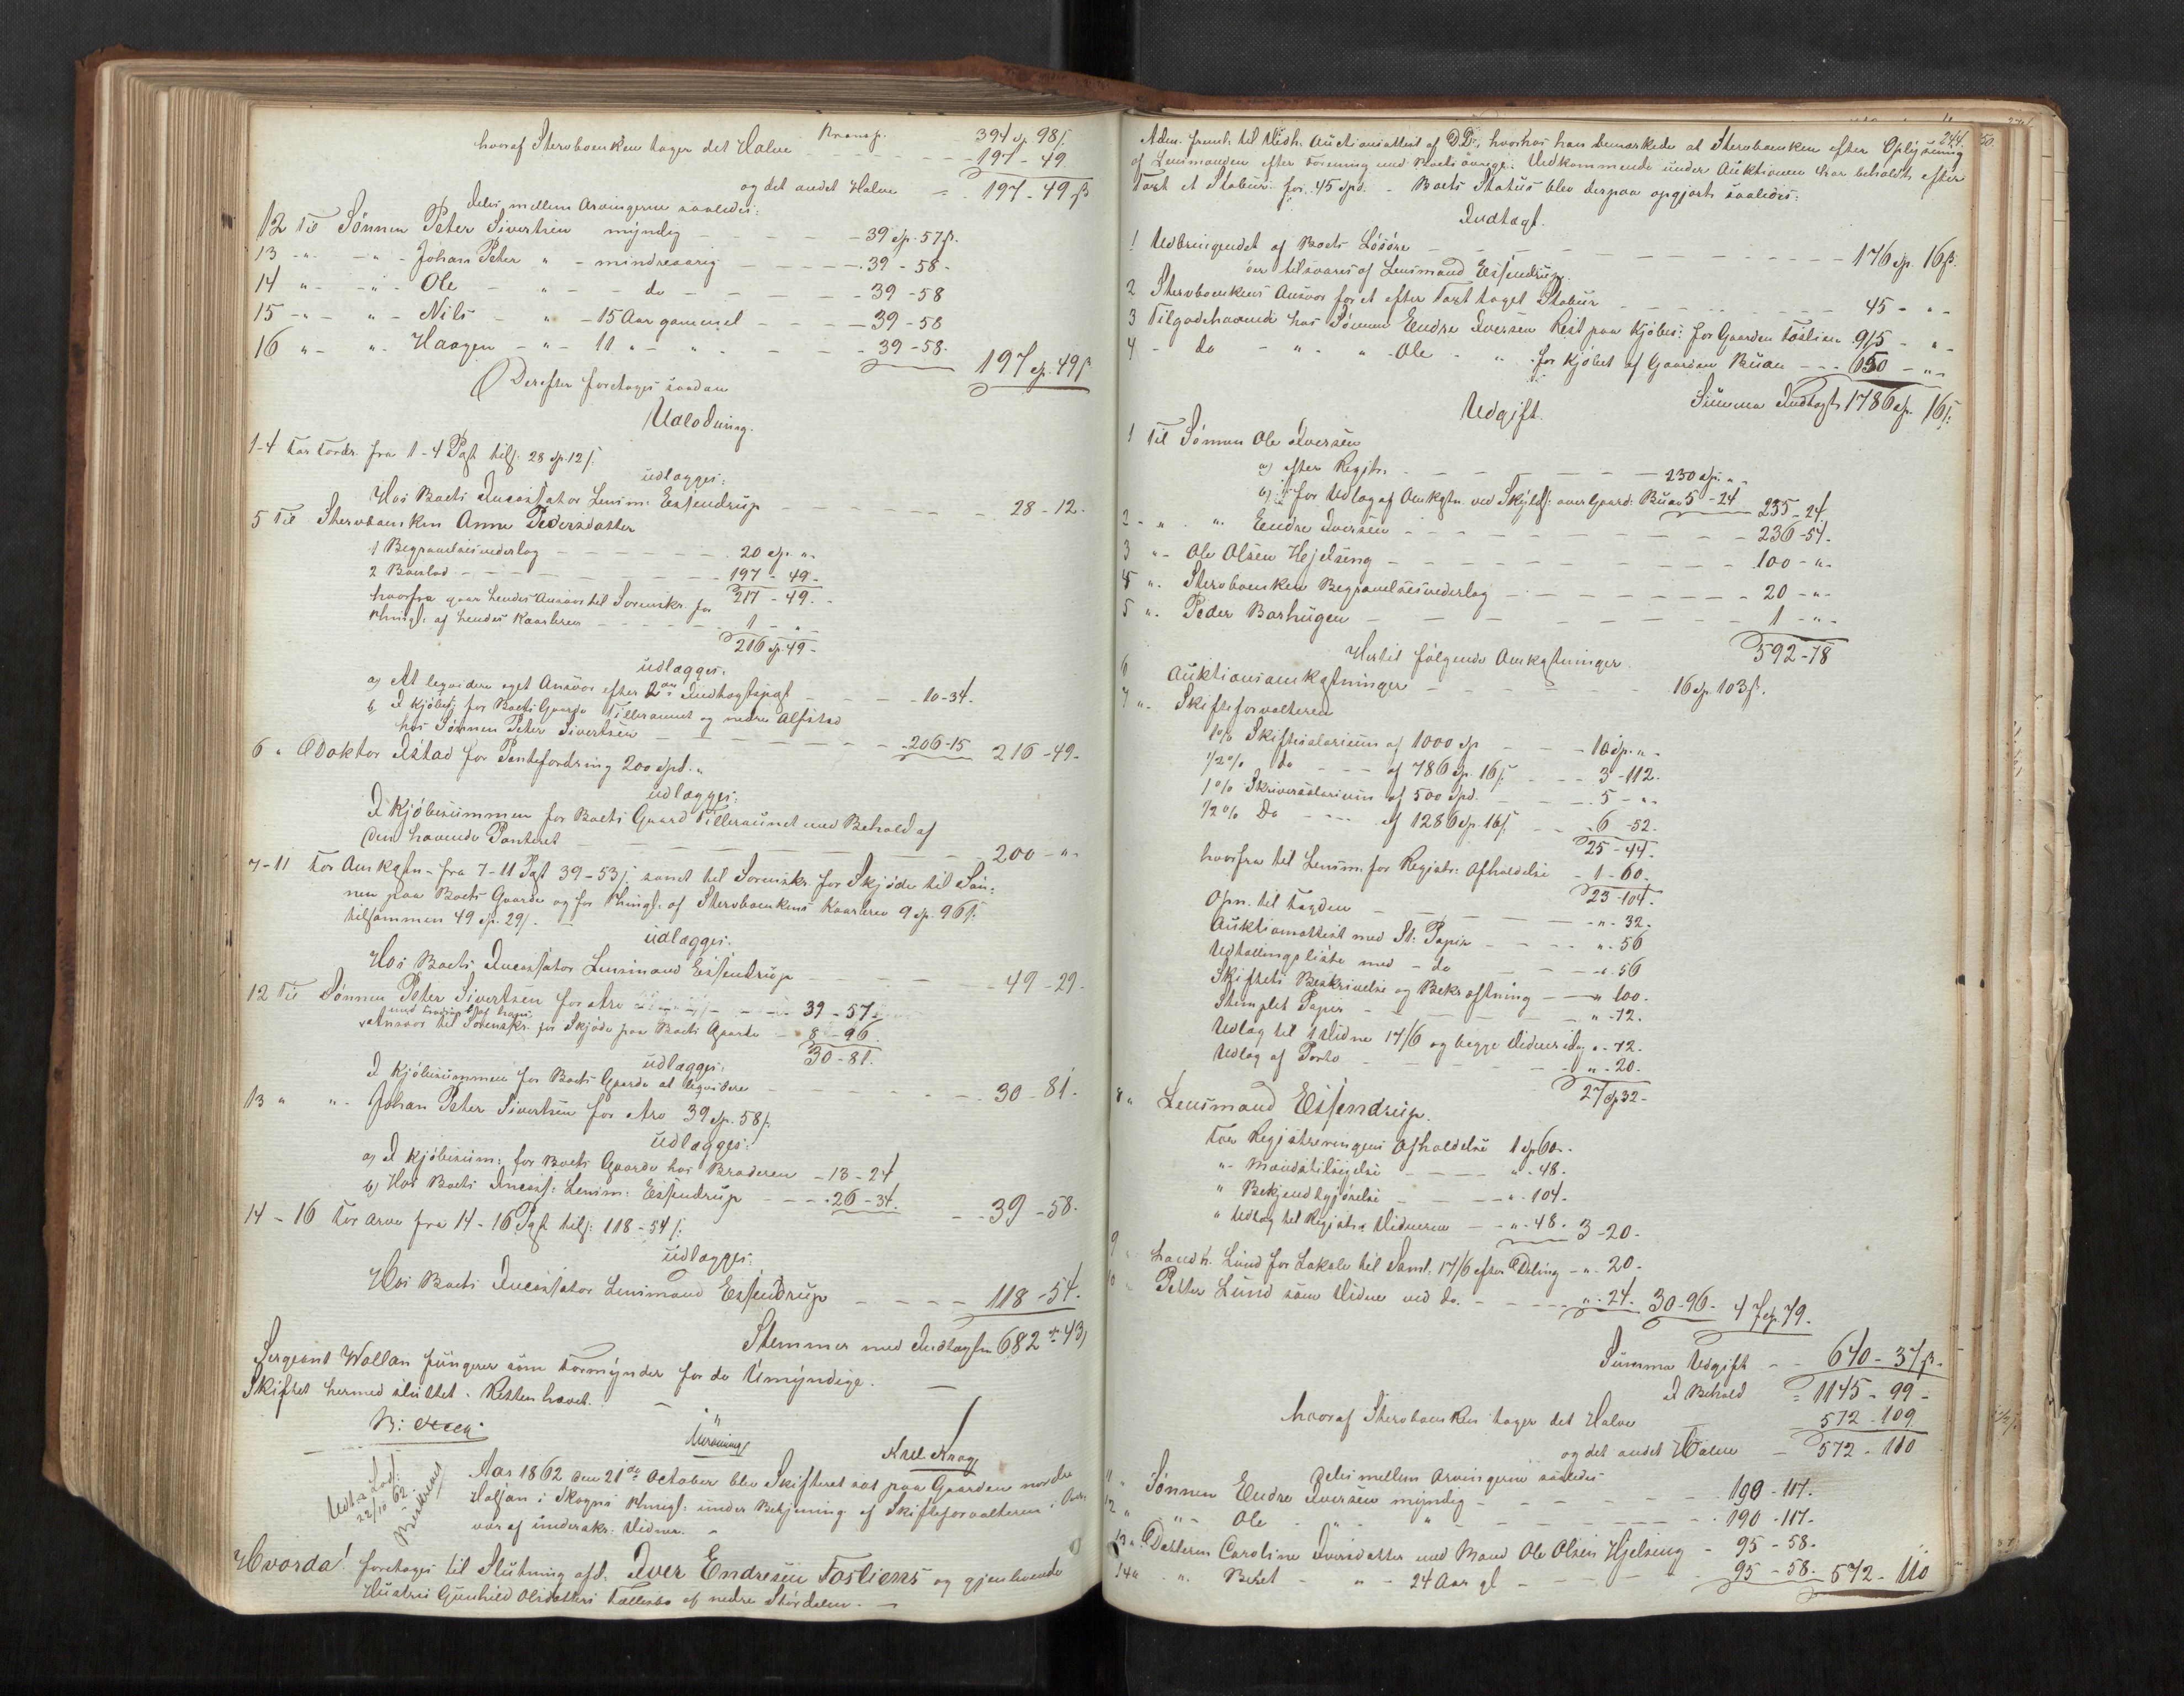 Transp. 394 Sp. 98 ß
hvoraf Stervboenken tager det Halve - - - 197 - 49.
og det andet Halve = 197 - 49 ß
deles mellem Arvingerne saaledes:
12 Til Sønnen Peter Sivertsen myndig - - - 39 Sp. 57 ß.
13 -"- -"- Johan Peter " - mindreaarig - - - 39 - 58 -
14 " - -"- Ole - " - - do - - - 39 - 58
15 -"- " - Nils - " - 15 Aar gammel - - - 39 - 58
16 " - " - Haagen - " - 11 " - " - - - 39 - 58. 197 Sp. 49 ß
Derefter foretoges saadan
Udlodning.
1-4 For Fordr. fra 1-4 Pgst tils. 28 Sp. 12 ß.
udlægges:
Hos Boets Incassator Lensm: Essendrup - - - 28 - 12 -
5 Til Stervboenken Anne Pedersdatter
1 Begravelsesvederlag - - - 20 Sp. "-
2 Boeslod - - - 197 - 49 -
hvorfra gaar hendes Ansvar til Sorenskr. for 217 - 49 -
Thingl: af hendes Kaarbrev - - - 1 - " -
216 Sp. 49 -
udlægges:
a) At liqvidere eget Ansvar efter 2den Indtægtspost - - - 10 - 34 -
b) I Kjøbes: for Boets Gaarde Tilleraunet og nedre Alfstad
hos Sønnen Peter Sivertsen - - - 206 - 15 216 - 49 -
6 " Doktor Istad for Pantefordring 200 Spd. "
udlægges:
I Kjøbesummen for Boets Gaard Tilleraunet med Behold af
den havende Panteret - - - 200 - " -
7-11 For Omkgstn. fra 7-11 Pgst 39 - 53 ß samt til Sorenskr. for Skjøde til Søn:
nen paa Boets Gaarde og for Thingl: af Stervboenkens Kaarbrev 9 Sp. 96 ß.
tilsammen 49 Sp. 29 ß. -
udlægges:
Hos Boets Incassator Lensmand Essendrup - - - 49 - 29 -
12 Til Sønnen Peter Sivertsen for Arv - - - 39 - 57.
Ansvar til Sorenskr. for Skjøde paa Boets Gaarde - 8 - 96
30 - 81.
udlægges:
I Kjøbesummen for Boets Gaarde at liqvidere - - - 30 - 81 -
13 " " - Johan Peter Sivertsen for Arv 39 Sp. 58 ß
udlægges:
a) I Kjøbesum: for Boets Gaarde hos Broderen - 13 - 24
b) Hos Boets Incass: Lensm: Essendrup - - - 26 - 34. - - 39 - 58 -
14 - 16 For Arv fra 14 - 16 Pgst tils: 118 - 54 ß.
udlægges:
Hos Boets Incassator Lensmand Essendrup - - - 118 - 54.
Stemmer med Indtægten 682 - 43 ß
Sergeant Wollan fungerer som Formynder for de Umyndige. -
Skiftet hermed sluttet. Retten hævet. -
Krag
Aar 1862 den 21de October blev Skifteret sat paa Gaarden nordre
Haljan i Skogns Thingl: under Betjening af Skifteforvalteren i Over
vær af underskr: Vidner. -
22/10 62.
Beskrevet
Hvorda! foretoges til Slutning afd. Iver Endresen Fosliens og gjenlevende
Hustrue Gunhild Olsdatters Fællesbo af nedre Størdalen. -
244. 50.
Adm. freml. til Vedh. Auctionsattest af D.D., hvorhos han bemærkede at Stervboenken efter Oplysning
af Lensmanden efter Forening med Boets øvrige Vedkommende under Auktionen har beholdt efter
Taxt et Stabur for 45 Spd. - Boets Status blev derpaa opgjort saaledes:
Indtægt.
1 Udbringendet af Boets Løsøre - - - 176 Sp. 16 ß.
der tilsvares af Lensmand Essendrup.
2 Stervboenkens Ansvar for et efter Taxt taget Stabur - - - 45 - " -
3 Tilgodehavende hos Sønnen Endre Iversen Rest paa Kjøbes: for Gaarden Foslien 915 - " -
4 - do - " - " - Ole - " - for Kjøbet af Gaarden Buan - - - 650 - " -
Summa Indtægt 1786 Sp. 16 ß.
Udgift.
1 Til Sønnen Ole Iversen
a) efter Registr. - - - 230 Sp. " -
b) for Udlæg af Omkgstn. ved Skyldf: over Gaard: Buan 5 - 24 235 - 24.
2 - " - " - Endre Iversen - - - 236 - 54.
3 " - Ole Olsen Hejelseng - - - 100 - " -
4 " - Stervboenken Begravelsesvederlag - - - 20 - " -
5 " - Peder Barhugen - - - 1 - " -
592 - 78
Hertil følgende Omkgstninger
6 Auktionsomkgstninger - - - 16 Sp. 103 ß.
7 " - Skifteforvalteren
1% Skiftesalarium af 1000 Sp - - - 10 Sp. " -
1/2% do - - - af 786 Sp. 16 ß - - - 3 - 112 -
1% Skriversalarium af 500 Spd. - - - 5 - " -
1/2% Do - - - af 1286 Sp. 16 ß - - - 6 - 52 -
25 - 44 -
hvorfra til Lensm: for Registr: Afholdelse - 1 - 60 -
23 - 104 -
Opn. til Fogden - - - " - 32 -
Auktionsattest med St: Papir - - - " - 56
Udtællingsliste med - do - - - " - 56
Skiftets Beskrivelse og Bekræftning - - " 100 -
Stemplet Papir - - - " - 72 -
Udlæg til 1 Vidne 17/6 og begge Vidner idag " - 72 -
Udlæg af Porto - - - " - 20 -
27 Sp 32 -
8 " Lensmand Essendrup.
For Registreringens Afholdelse 1 Sp 60 -
" - Mandstilsigelse - - - " - 48 -
" Bekjendtgjørelse - - - " - 104 -
" Udlæg til Registr. Vidnerne - - " - 48 - 3 - 20 -
9 " Handh. Lund for Lokale til Saml: 17/6 efter Deling - " - 20 -
10 " Petter Lund som Vidne ved do. - - - " - 24. 30 - 96 - 47 Sp. 79.
Summa Udgift - - 640 - 37 ß -
I Behold = 1145 - 99 -
hvoraf Stervboenken tager det Halve 572 - 109
og det andet Halve - 572 - 110
deles mellem Arvingerne saaledes
11 " Sønnen Endre Iversen myndig - - - 190 - 117 -
12 " " - Ole - " - " - - - 190 - 117 -
13 " Datteren Caroline Iversdatter med Mand Ole Olsen Hjelseng - 95 - 58 -
14 " " - Beret - " - 24 Aar gl - - - 95 - 58 - 572 - 110